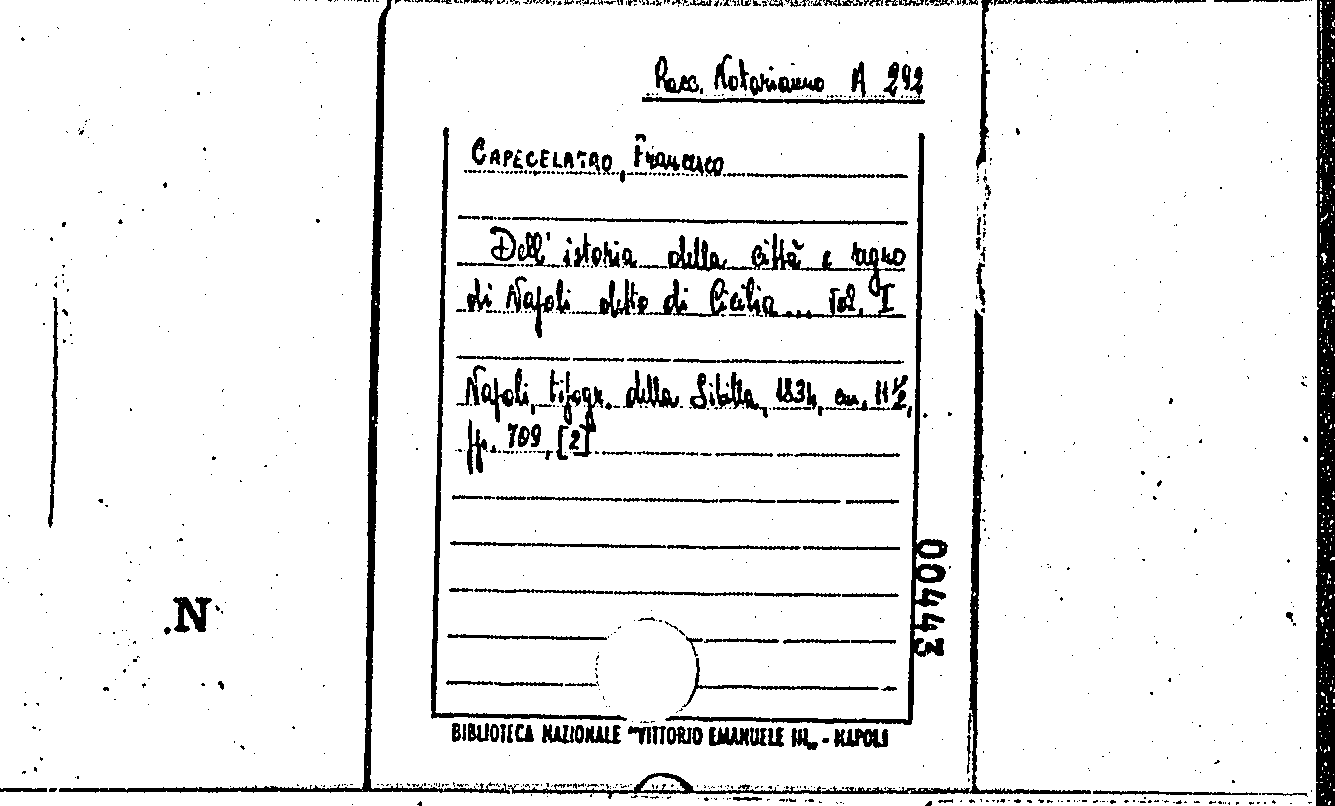 Racc. Notarianno A 292
CAPECELATRO, Francesco
Dell' istoria della città e regno
di Napoli detto di Cicilia... Vol. I
Napoli, tipogr. della Sibilla, 1834, cm. 11½,
pp. 709, [2]
00443
.N
BIBLIOTECA NAZIONALE "VITTORIO EMANUELE III„ - NAPOLI